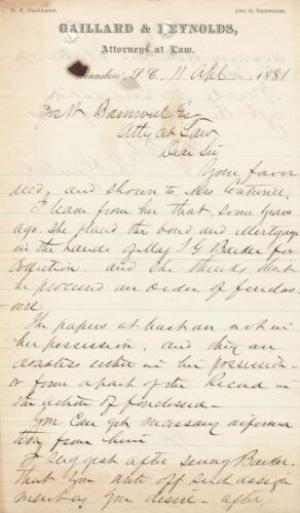 GAILLARD & REYNOLDS,
Attorneys at Law.
S.C. 11 Apl 1881
Jos W Barnwell Esq
Atty at Law
Dear Sir
Your favor
recd, and shown to Mrs
I learn from her that, some years
ago, she placed the bond and Mortgage
in the hands of Maj T G Barker for
Collection and she thinks that
he procured an order of foreclos-
ure.
The papers at least are not in
her possession, and they are
doubtless either in his possession
or form a part of the Record in
the action of foreclosure
You can get necessary informa
tion from him
I suggest after seeing Barker
that you write off such assign
ment as you desire - after